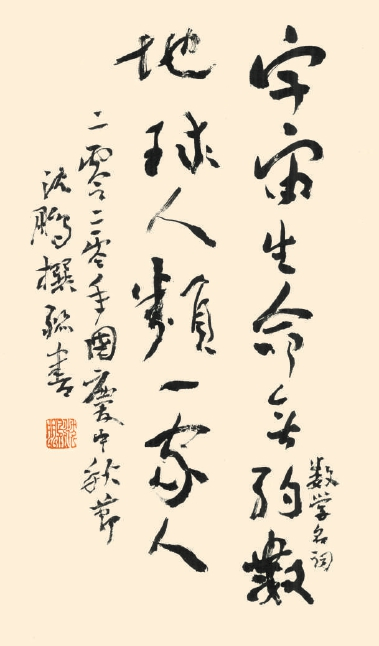 宇宙生命约數
數学名词
地球人類一家人
二零二零年國慶中秋節
沈鵬撰聯書